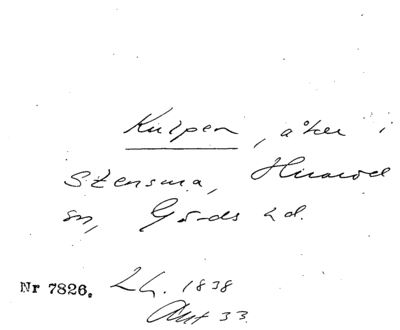 Kulpen, åker i
Stensma, Huaröd
sn, Gärds hd.
Nr 7826. L h. 1838
Akt 33.